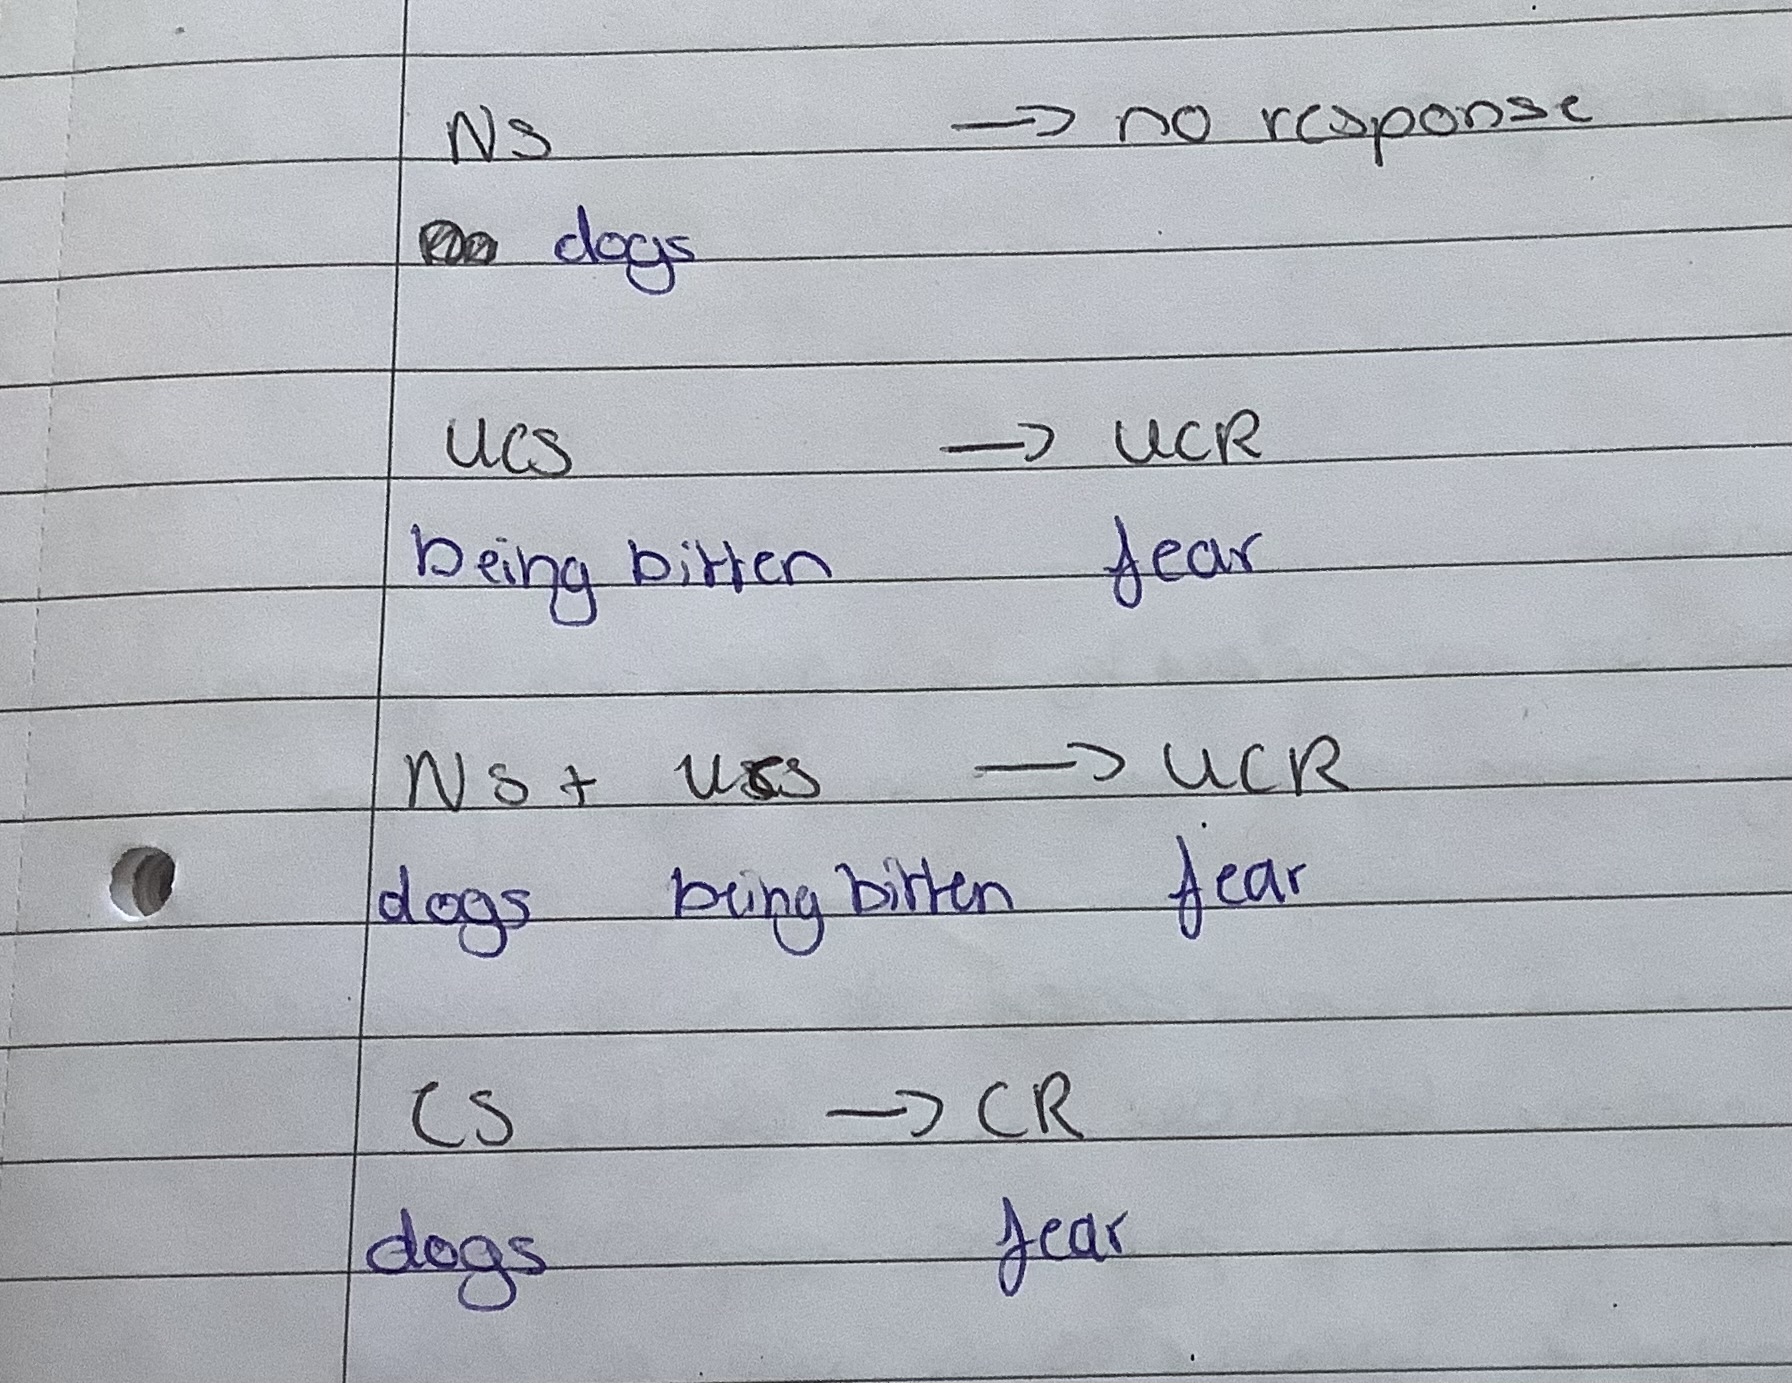 NS → no response
dogs
UCS → UCR
being bitten fear
NS + UCS → UCR
dogs being bitten fear
CS → CR
dogs fear